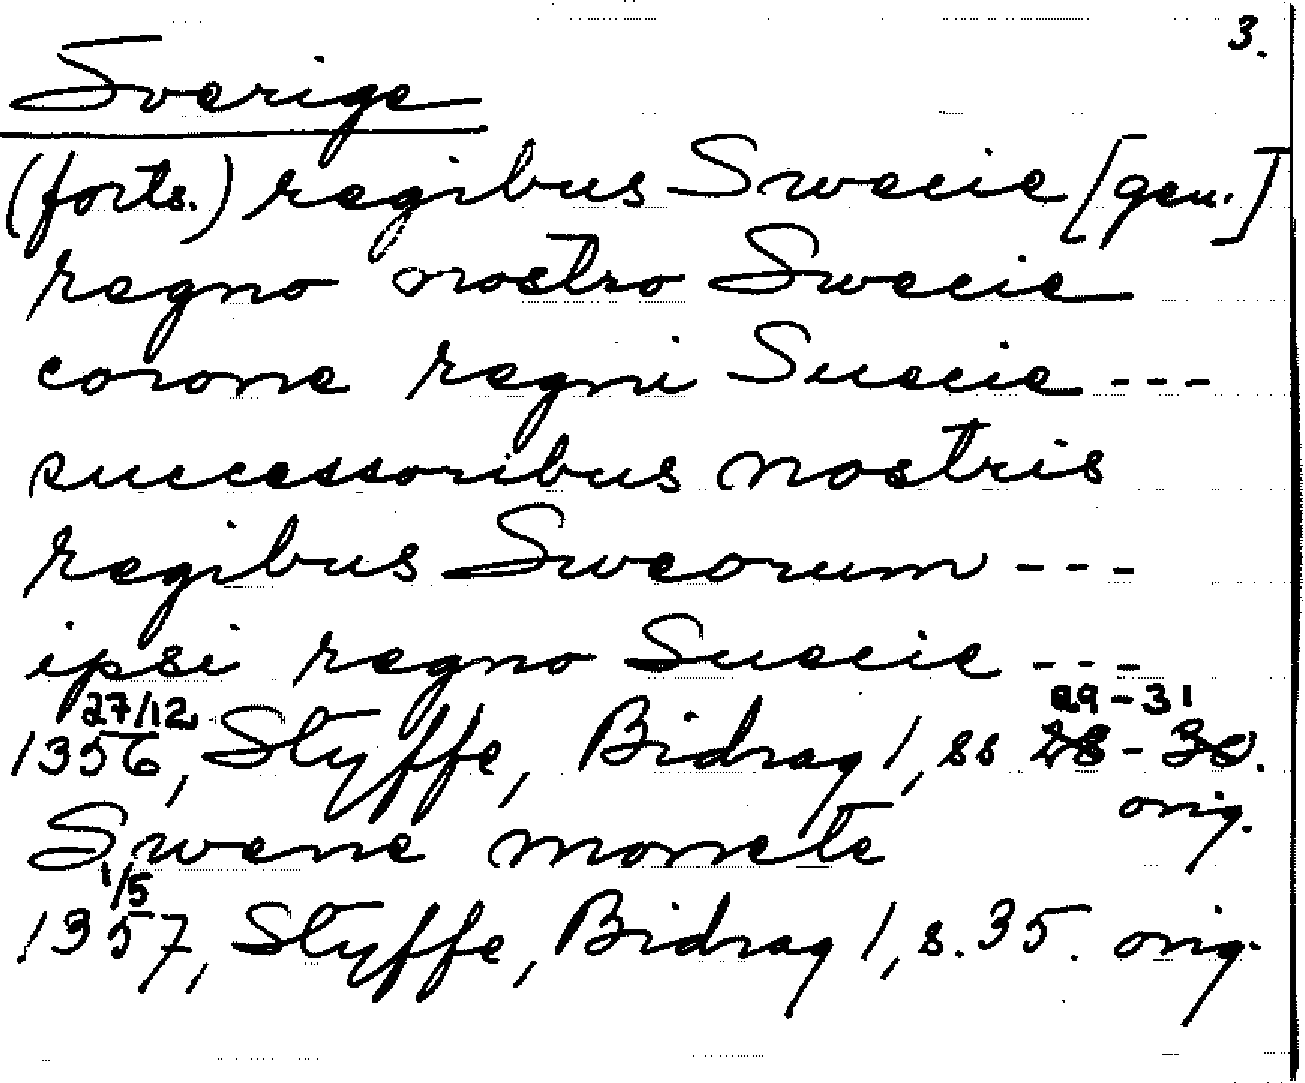 3.
Sverige
(forts.) regibus Swecie [gen.]
regno nostro Swecie
corone regni Suecie ---
successoribus nostris
regibus Sweorum ---
ipsi regno Suecie ---
27/12 29-31
1356, Styffe, Bidrag 1, ss 28-30.
orig.
Swene monete
1/5
1357, Styffe, Bidrag 1, s. 35. orig.